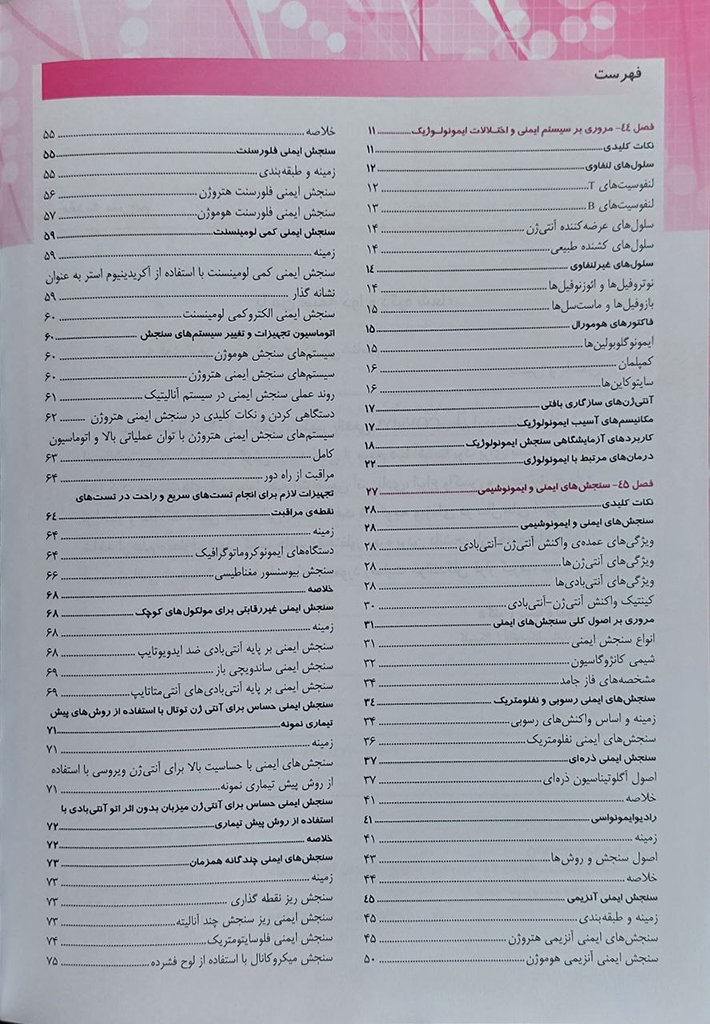 فهرست
فصل ٤٤- مروری بر سیستم ایمنی و اختلالات ایمونولـوژیک ............ ۱۱
نکات کلیدی ............ ۱۱
سلول‌های لنفاوی ............ ۱۲
لنفوسیت‌های T ............ ۱۲
لنفوسیت‌های B ............ ۱۳
سلول‌های عرضه‌کننده آنتی‌ژن ............ ۱۴
سلول‌های کشنده طبیعی ............ ۱۴
سلول‌های غیرلنفاوی ............ ١٤
نوتروفیل‌ها و ائوزنوفیل‌ها ............ ۱۴
بازوفیل‌ها و ماست‌سل‌ها ............ ۱۵
فاکتورهای هومورال ............ ۱۵
ایمونوگلوبولین‌ها ............ ۱۵
کمپلمان ............ ۱۶
سایتوکاین‌ها ............ ۱۶
آنتی‌ژن‌های سازگاری بافتی ............ ۱۷
مکانیسم‌های آسیب ایمونولوژیک ............ ۱۷
کاربردهای آزمایشگاهی سنجش ایمونولوژیک ............ ۱۸
درمان‌های مرتبط با ایمونولوژی ............ ۲۲
فصل ٤٥- سنجش‌های ایمنی و ایمونوشیمی ............ ۲۷
نکات کلیدی ............ ۲۸
سنجش‌های ایمنی و ایمونوشیمی ............ ۲۸
ویژگی‌های عمده‌ی واکنش آنتی‌ژن-آنتی‌بادی ............ ۲۸
ویژگی‌های آنتی‌ژن‌ها ............ ۲۸
ویژگی‌های آنتی‌بادی‌ها ............ ۲۸
کینتیک واکنش آنتی‌ژن-آنتی‌بادی ............ ۳۰
مروری بر اصول کلی سنجش‌های ایمنی ............ ۳۱
انواع سنجش ایمنی ............ ۳۱
شیمی کانژوگاسیون ............ ۳۲
مشخصه‌های فاز جامد ............ ۳۴
سنجش‌های ایمنی رسوبی و نفلومتریک ............ ٣٤
زمینه و اساس واکنش‌های رسوبی ............ ۳۴
سنجش‌های ایمنی نفلومتریک ............ ۳۶
سنجش ایمنی ذره‌ای ............ ۳۷
اصول آگلوتیناسیون ذره‌ای ............ ۳۷
خلاصه ............ ۴۱
رادیوایمونواسی ............ ٤١
زمینه ............ ۴۱
اصول سنجش و روش‌ها ............ ۴۳
خلاصه ............ ۴۴
سنجش ایمنی آنزیمی ............ ٤٥
زمینه و طبقه‌بندی ............ ۴۵
سنجش‌های ایمنی آنزیمی هتروژن ............ ۴۵
سنجش ایمنی آنزیمی هوموژن ............ ۵۰
خلاصه ............ ۵۵
سنجش ایمنی فلورسنت ............ ۵۵
زمینه و طبقه‌بندی ............ ۵۵
سنجش ایمنی فلورسنت هتروژن ............ ۵۶
سنجش ایمنی فلورسنت هوموژن ............ ۵۷
سنجش ایمنی کمی لومینسنت ............ ۵۹
زمینه ............ ۵۹
سنجش ایمنی کمی لومینسنت با استفاده از آکریدینیوم استر به عنوان
نشانه گذار ............ ۵۹
سنجش ایمنی الکتروکمی لومینسنت ............ ۶۰
اتوماسیون تجهیزات و تغییر سیستم‌های سنجش ............ ۶۰
سیستم‌های سنجش هوموژن ............ ۶۰
سیستم‌های سنجش ایمنی هتروژن ............ ۶۰
روند عملی سنجش ایمنی در سیستم آنالیتیک ............ ۶۱
دستگاهی کردن و نکات کلیدی در سنجش ایمنی هتروژن ............ ۶۲
سیستم‌های سنجش ایمنی هتروژن با توان عملیاتی بالا و اتوماسیون
کامل ............ ۶۳
مراقبت از راه دور ............ ۶۴
تجهیزات لازم برای انجام تست‌های سریع و راحت در تست‌های
نقطه‌ی مراقبت ............ ٦٤
زمینه ............ ۶۴
دستگاه‌های ایمونوکروماتوگرافیک ............ ۶۴
سنجش بیوسنسور مغناطیسی ............ ۶۶
خلاصه ............ ۶۸
سنجش ایمنی غیررقابتی برای مولکول‌های کوچک ............ ۶۸
زمینه ............ ۶۸
سنجش ایمنی بر پایه آنتی‌بادی ضد ایدیوتایپ ............ ۶۸
سنجش ایمنی ساندویچی باز ............ ۶۹
سنجش ایمنی بر پایه آنتی‌بادی‌های آنتی‌متاتایپ ............ ۶۹
سنجش ایمنی حساس برای آنتی ژن توتال با استفاده از روش‌های پیش
تیماری نمونه ............ ۷۱
زمینه ............ ۷۱
سنجش‌های ایمنی با حساسیت بالا برای آنتی‌ژن ویروسی با استفاده
از روش پیش تیماری نمونه ............ ۷۱
سنجش ایمنی حساس برای آنتی‌ژن میزبان بدون اثر اتو آنتی‌بادی با
استفاده از روش پیش تیماری ............ ۷۲
خلاصه ............ ۷۲
سنجش‌های ایمنی چندگانه همزمان ............ ۷۳
زمینه ............ ۷۳
سنجش ریز نقطه گذاری ............ ۷۳
سنجش ایمنی ریز سنجش چند آنالیته ............ ۷۳
سنجش ایمنی فلوسایتومتریک ............ ۷۴
سنجش میکروکانال با استفاده از لوح فشرده ............ ۷۵